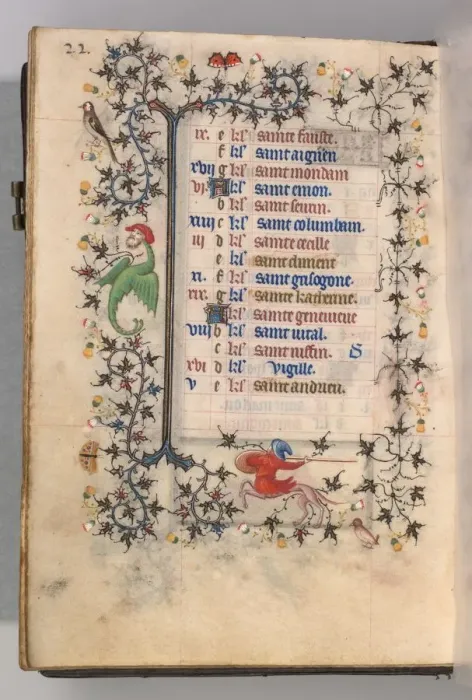 22.
ix. e kl' sainte fauste.
f kl' saint aignen
xvij g kl' saint mondain
vj. A kl' saint emon.
b kl' saint seurin.
xiiij c kl' saint columbain.
iij d kl' sainte cecille
e kl' saint climent
xi. f kl' saint grisogone.
xix. g kl' sainte katerine.
A kl' sainte geneuieue
viij b kl' saint vital.
c kl' saint ruffin. S
xvi d kl' vigille.
v e kl' saint andrieu.